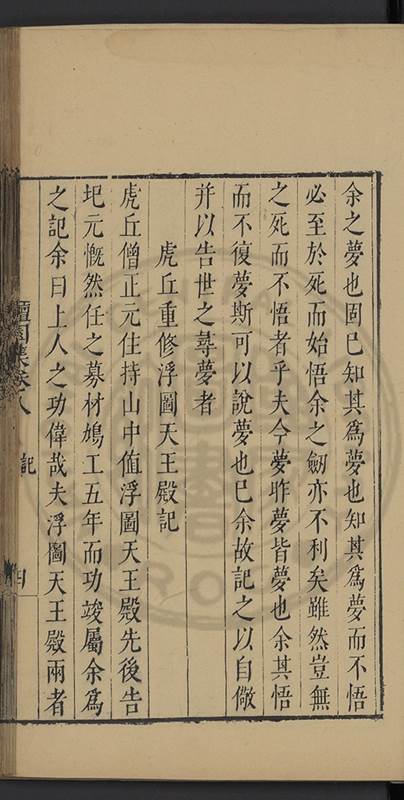 余之夢也固已知其爲夢也知其爲夢而不悟
必至於死而始悟余之劒亦不利矣雖然豈無
之死而不悟者乎夫今夢昨夢皆夢也余其悟
而不復夢斯可以說夢也已余故記之以自儆
并以告世之尋夢者
虎丘重修浮圖天王殿記
虎丘僧正元住持山中值浮圖天王殿先後告
圮元慨然任之募材鳩工五年而功竣屬余爲
之記余曰上人之功偉哉夫浮圖天王殿兩者
檀園集卷八
記
四